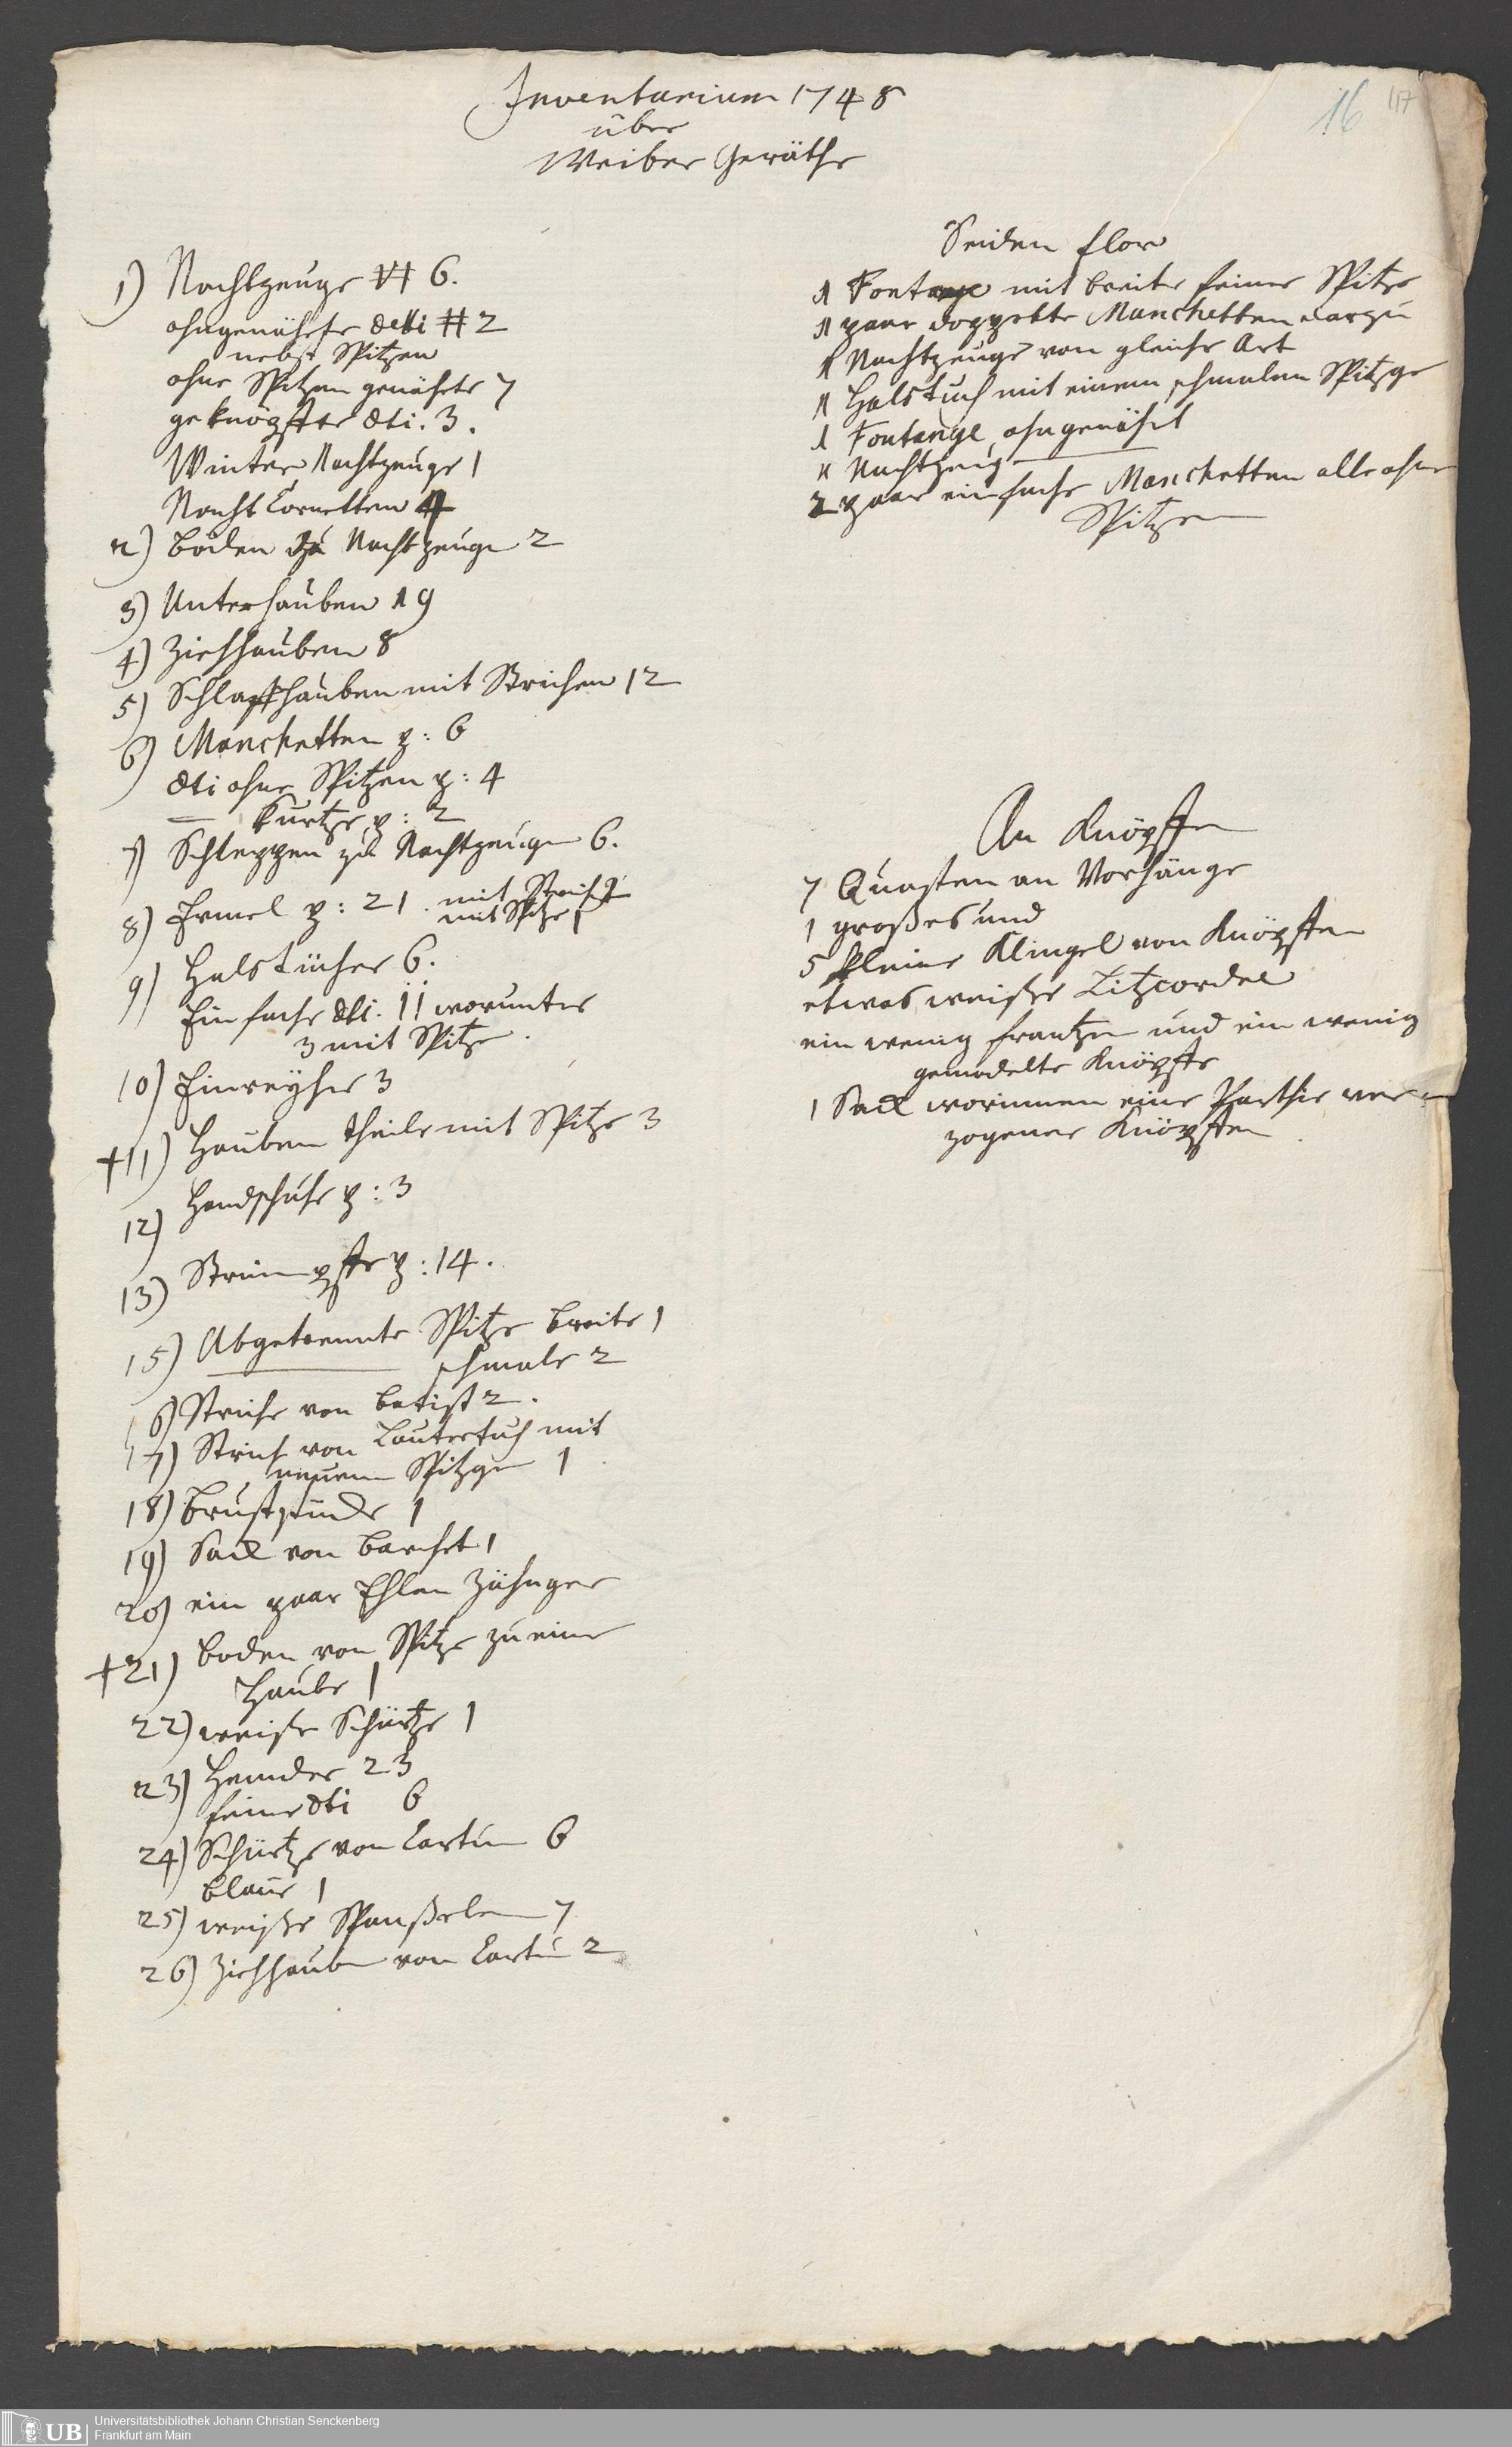 Inventarium 1748
über
Weiber Geräthe
16
117
1) Nachtzeuge 6.
ohngenähete detti 2
nebst Spitzen
ohne Spitzen genähete 7
geknöpffte dti. 3.
Winter Nachtzeuge 1
Nacht Cornetten 4
2) Böden zu Nachtzeuge 2
3) Unterhauben 19
4) Ziehhauben 8
5) Schlaffhauben mit Strichen 12
6) Manchetten p: 6
dti ohne Spitzen p: 4
— kurtze p: 2
7) Schleppen zu Nachtzeugen 6.
8) Ermel p: 21. mit Strich
mit Spitze 1
9) Halstücher 6.
Einfache dti. 11 worunter
3 mit Spitze
10) Einreyher 3
+11) Hauben theile mit Spitze 3
12) Handschuhe p: 3
13) Strümpffe p: 14.
15) Abgetrennte Spitze breite 1
schmale 2
16) Striche von Batist 2.
17) Strich von Lautertuch mit
neuem Spitzgen 1
18) Brust 1
19) Sack von Barchet 1
20) ein paar Ehlen Zähnger
+21) Boden von Spitze zu einer
Haube 1
22) weiße Schürtze 1
23) Hemder 23
feine dti 6
24) Schürtze von Cartun 6
blaue 1
25) weiße 7
26) Ziehhauben von Cartun 2
Seiden flor
1 Fontange mit breite feiner Spitze
1 paar doppelte Manchetten darzu
1 Nachtzeuge von gleiche Art
1 Halstuch mit einem schmalen Spitzge
1 Fontange ohngenähet
1 Nachtzeug
2 paar einfache Manchetten alle ohne
Spitzen
An Knöpffen
7 Quasten an Vorhänge
1 großes und
5 kleine Klingel von Knöpffen
etwas weiße Litzcordel
ein wenig frantzen und ein wenig
gemodelte Knöpffe
1 Sack worinnen eine Parthie ver
zogener Knöpffen
UB
Universitätsbibliothek Johann Christian Senckenberg
Frankfurt am Main